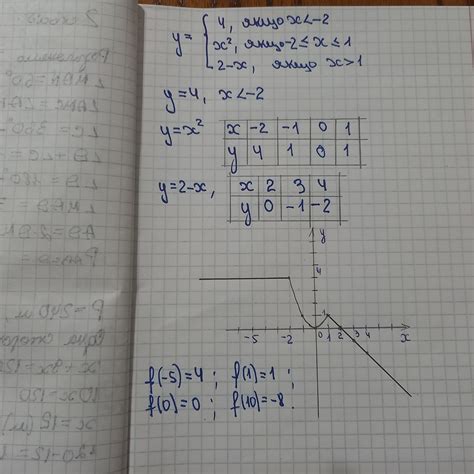 4, якщо x<-2
y= x², якщо -2≤x≤1
2-x, якщо x>1
y=4, x<-2
y=x² x -2 -1 0 1
y 4 1 0 1
y=2-x, x 2 3 4
y 0 -1 -2
y
4
1
-5 -2 0 1 2 3 4 x
f(-5)=4; f(1)=1;
f(0)=0; f(10)=-8.